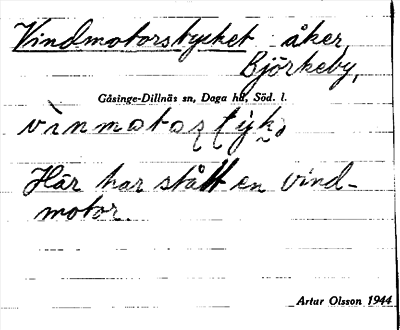 Vindmotorstycket åker,
Björkeby,
Gåsinge-Dillnäs sn, Daga hd, Söd. l.
Här har stått en vind-
motor.
Artur Olsson 1944